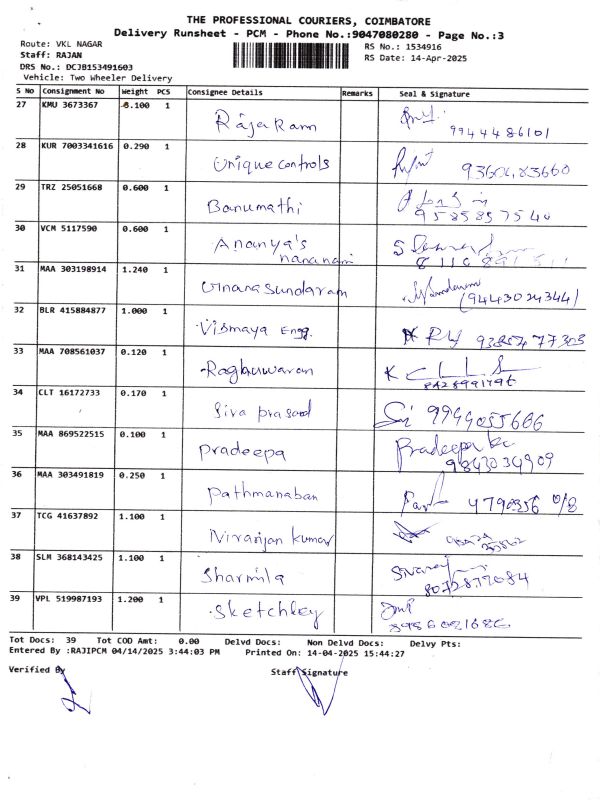 THE PROFESSIONAL COURIERS, COIMBATORE
Delivery Runsheet - PCM - Phone No.:9047080280 - Page No.:3
Route: VKL NAGAR RS No.: 1534916
Staff: RAJAN RS Date: 14-Apr-2025
DRS No.: DCJB153491603
Vehicle: Two Wheeler Delivery
S No Consignment No Weight PCS Consignee Details Remarks Seal & Signature
27 KMU 3673367 0.100 1 Rajaram 9944486101
28 KUR 7003341616 0.290 1 Unique controls
29 TRZ 25051668 0.600 1 Banumathi 9585857540
30 VCM 5117590 0.600 1 Ananya's nananani
31 MAA 303198914 1.240 1 Gnanasundaram (9443024344)
32 BLR 415884877 1.000 1 Vismaya Eng.
33 MAA 708561037 0.120 1 Raghuwaran
34 CLT 16172733 0.170 1 Siva prasad 9944055666
35 MAA 869522515 0.100 1 Pradeepa Pradeepa 9843034909
36 MAA 303491819 0.250 1 Pathmanaban
37 TCG 41637892 1.100 1 Niranjan kumar
38 SLM 368143425 1.100 1 Sharmila
39 VPL 519987193 1.200 1 Sketchley
Tot Docs: 39 Tot COD Amt: 0.00 Delvd Docs: Non Delvd Docs: Delvy Pts:
Entered By :RAJIPCM 04/14/2025 3:44:03 PM Printed On: 14-04-2025 15:44:27
Verified By Staff Signature